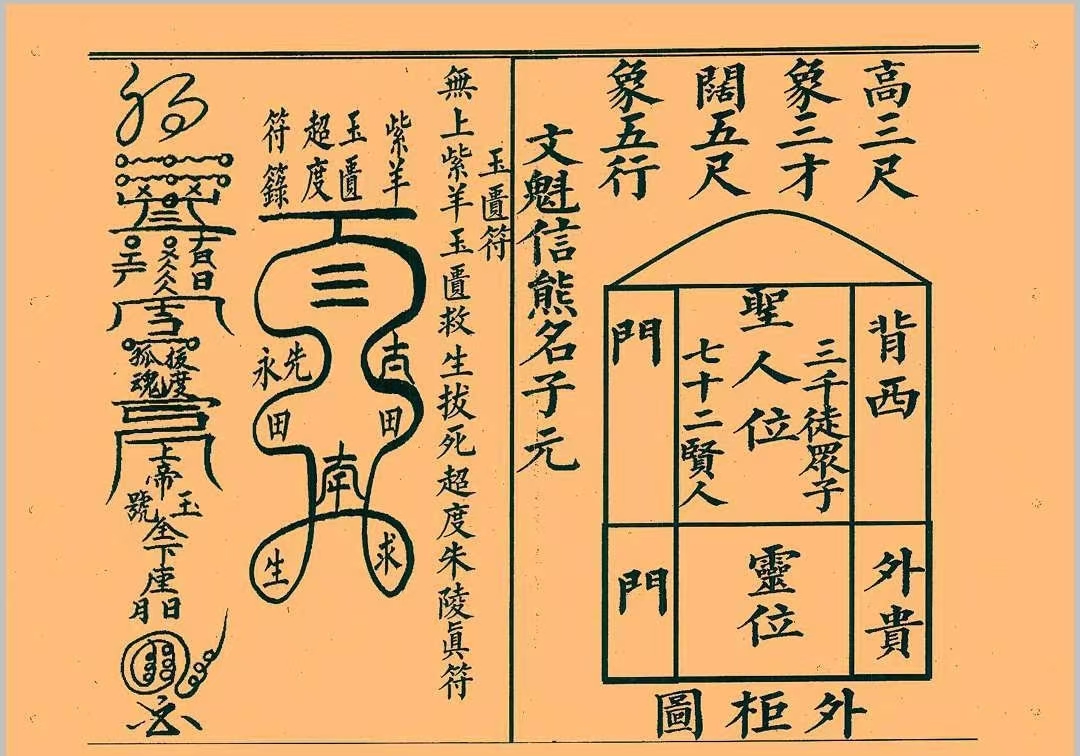 高三尺
象三才
闊五尺
象五行
背西
外貴
聖人位
三千徒眾子
七十二賢人
靈位
門
門
外柜圖
文魁信熊名子元
玉匱符
無上紫羊玉匱救生拔死超度朱陵眞符
紫羊
玉匱
超度
符籙
三
先
永
古
田
田
南
求
生
援度
孤魂
上帝
玉
號
下座
日
月